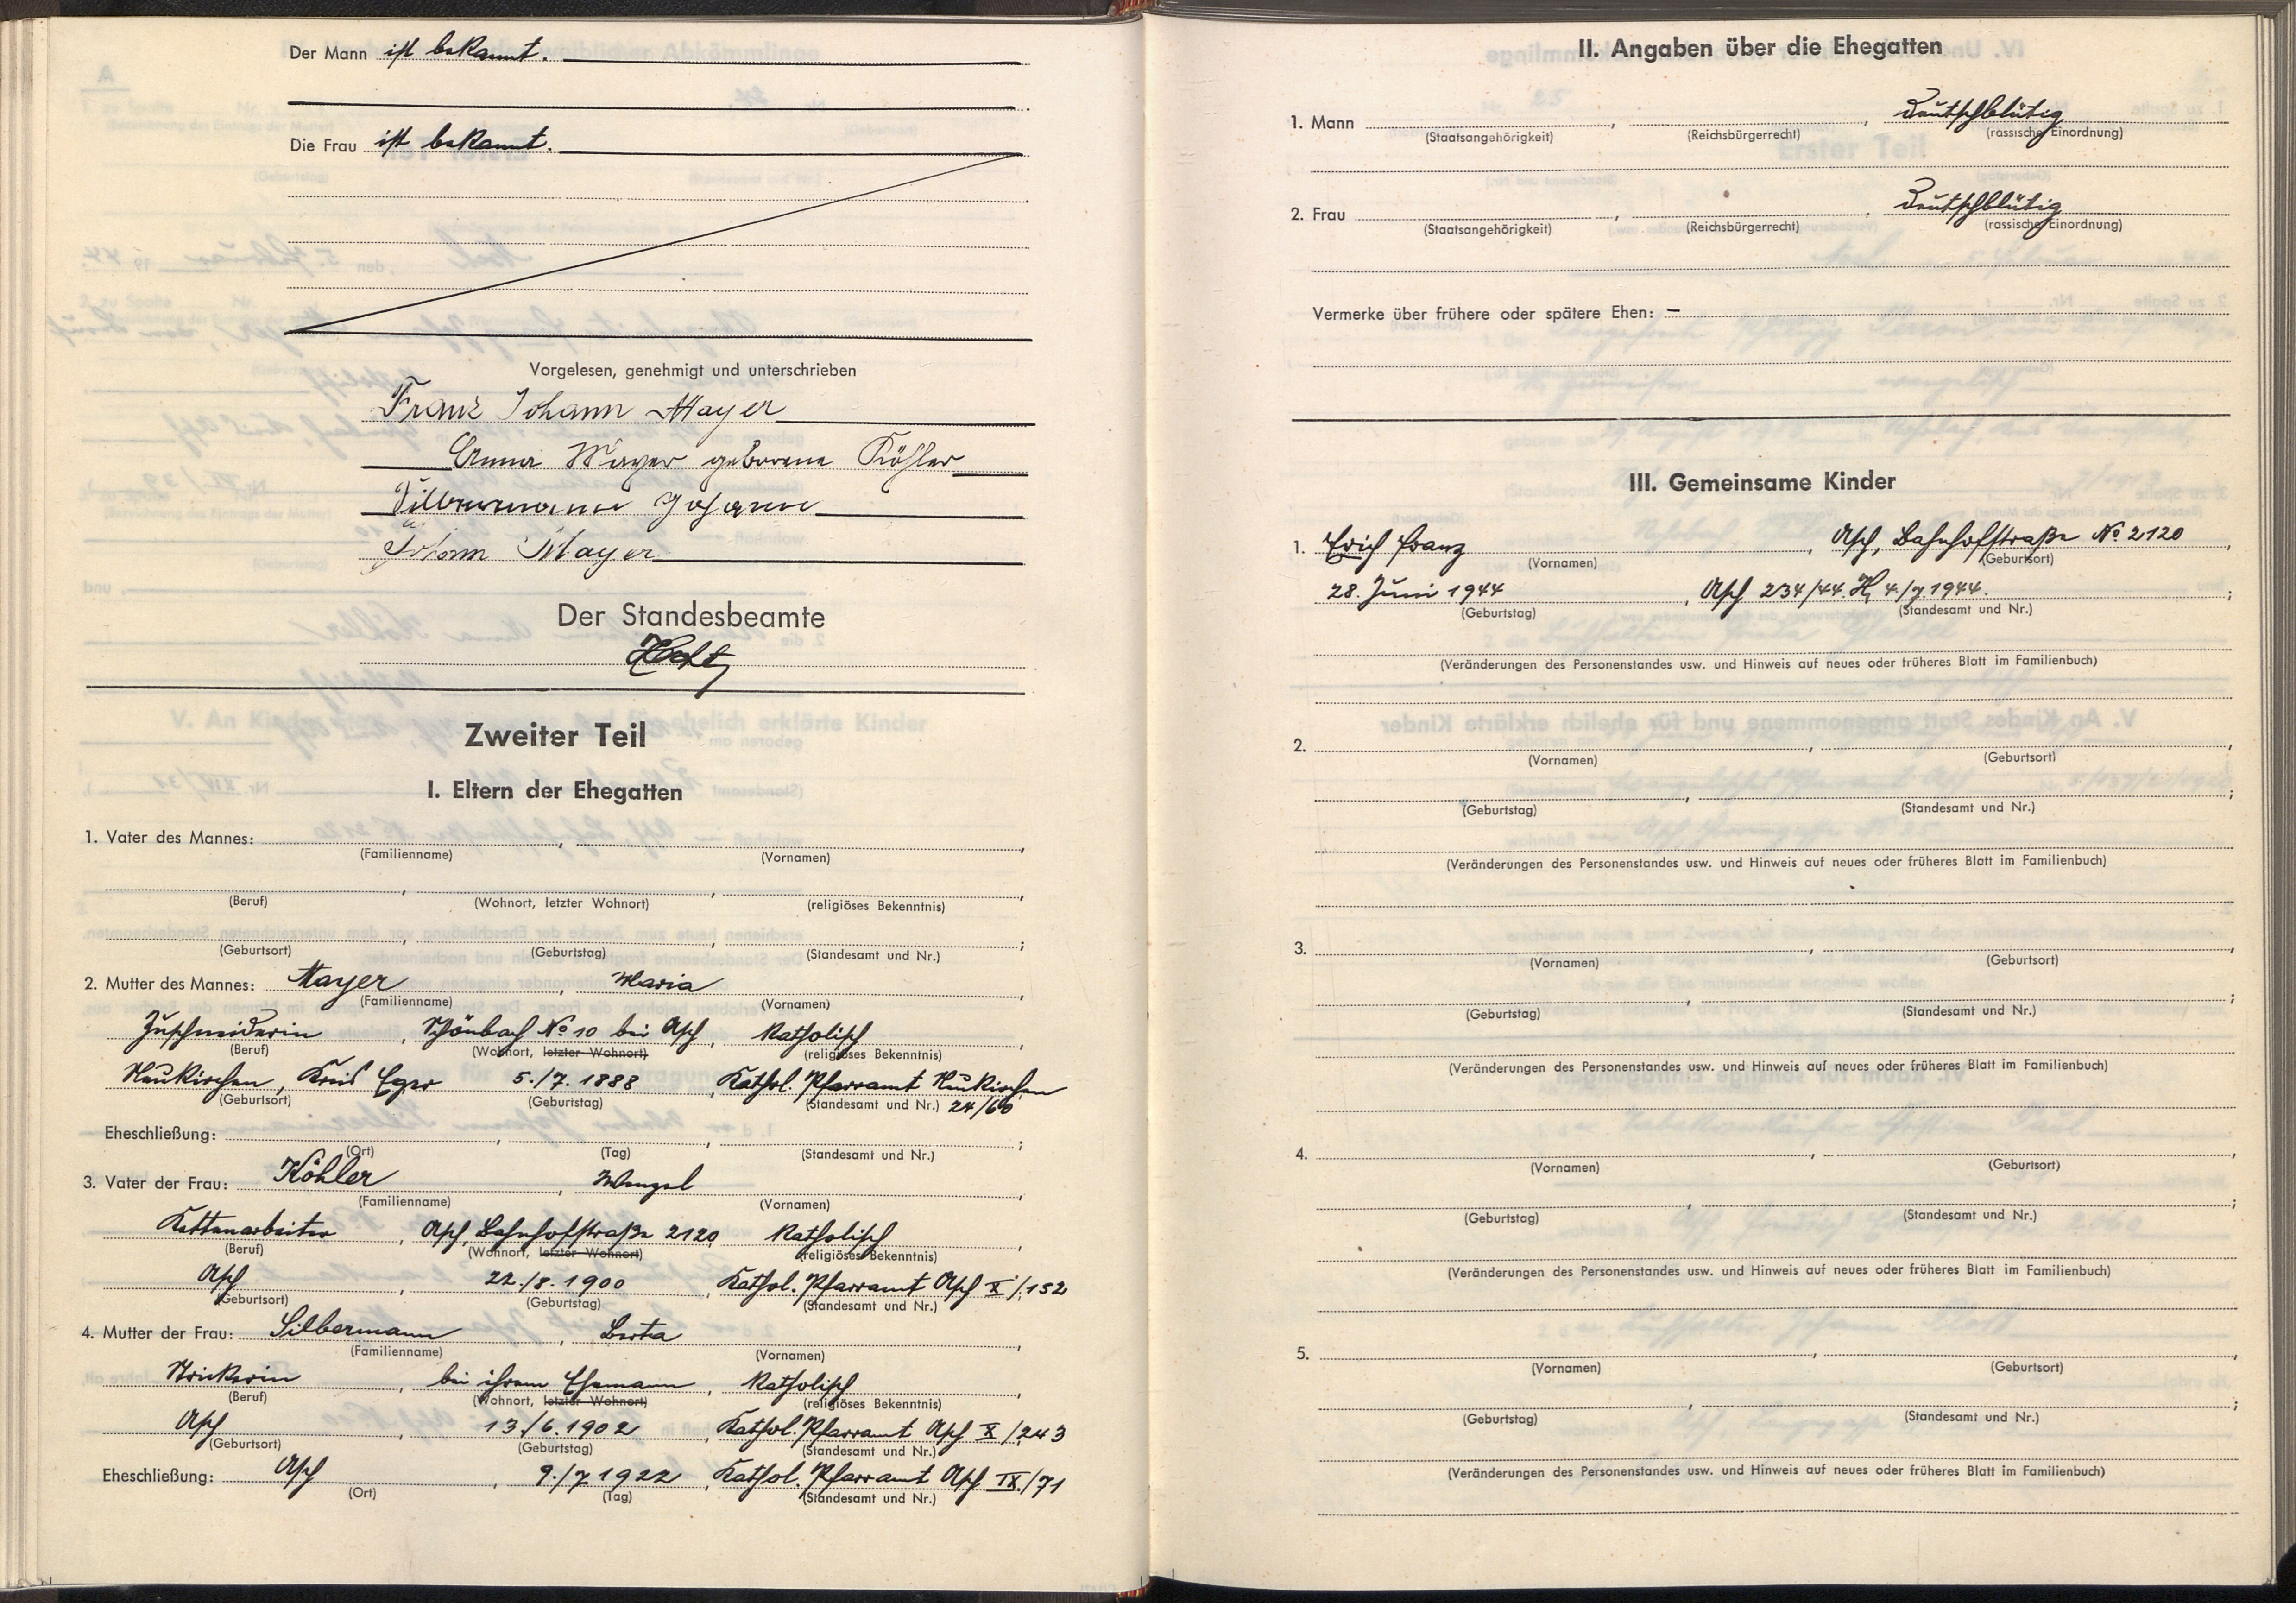 Der Mann ist bekannt.
Die Frau ist bekannt.
Vorgelesen, genehmigt und unterschrieben
Franz Johann Mayer
Anna Mayer geborene Köhler
Silbermann Johann
Johann Mayer
Der Standesbeamte
Zweiter Teil
I. Eltern der Ehegatten
1. Vater des Mannes: , ,
(Familienname) (Vornamen)
(Beruf) (Wohnort, letzter Wohnort) (religiöses Bekenntnis)
(Geburtsort) (Geburtstag) (Standesamt und Nr.)
2. Mutter des Mannes: Mayer, Maria
(Familienname) (Vornamen)
Zuschneiderin, Schönbach No 10 bei Asch, Katholisch,
(Beruf) (Wohnort, letzter Wohnort) (religiöses Bekenntnis)
Neukirchen, Kreis Eger 5./7. 1888, Kathol. Pfarramt Neukirchen
(Geburtsort) (Geburtstag) (Standesamt und Nr.) 24/60
Eheschließung: , , ;
(Ort) (Tag) (Standesamt und Nr.)
3. Vater der Frau: Köhler, Wenzel
(Familienname) (Vornamen)
Kettenarbeiter, Asch, Bahnhofstraße 2120 Katholisch,
(Beruf) (Wohnort, letzter Wohnort) (religiöses Bekenntnis)
Asch, 22./8. 1900, Kathol. Pfarramt Asch X/152
(Geburtsort) (Geburtstag) (Standesamt und Nr.)
4. Mutter der Frau: Silbermann, Berta,
(Familienname) (Vornamen)
Strickerin, bei ihrem Ehemann, Katholisch,
(Beruf) (Wohnort, letzter Wohnort) (religiöses Bekenntnis)
Asch, 13./6. 1902, Kathol. Pfarramt Asch X/243
(Geburtsort) (Geburtstag) (Standesamt und Nr.)
Eheschließung: Asch, 9./7 1922, Kathol. Pfarramt Asch IX./71
(Ort) (Tag) (Standesamt und Nr.)
II. Angaben über die Ehegatten
1. Mann , , Deutschblütig
(Staatsangehörigkeit) (Reichsbürgerrecht) (rassische Einordnung)
2. Frau , , Deutschblütig
(Staatsangehörigkeit) (Reichsbürgerrecht) (rassische Einordnung)
Vermerke über frühere oder spätere Ehen: –
III. Gemeinsame Kinder
1. Erich Franz, Asch, Bahnhofstraße No 2120,
(Vornamen) (Geburtsort)
28. Juni 1944, Asch 234/44. H, 4./7.1944. ;
(Geburtstag) (Standesamt und Nr.)
(Veränderungen des Personenstandes usw. und Hinweis auf neues oder früheres Blatt im Familienbuch)
2. , ,
(Vornamen) (Geburtsort)
(Geburtstag) (Standesamt und Nr.)
(Veränderungen des Personenstandes usw. und Hinweis auf neues oder früheres Blatt im Familienbuch)
3. , ,
(Vornamen) (Geburtsort)
(Geburtstag) (Standesamt und Nr.)
(Veränderungen des Personenstandes usw. und Hinweis auf neues oder früheres Blatt im Familienbuch)
4. , ,
(Vornamen) (Geburtsort)
(Geburtstag) (Standesamt und Nr.)
(Veränderungen des Personenstandes usw. und Hinweis auf neues oder früheres Blatt im Familienbuch)
5. , ,
(Vornamen) (Geburtsort)
(Geburtstag) (Standesamt und Nr.)
(Veränderungen des Personenstandes usw. und Hinweis auf neues oder früheres Blatt im Familienbuch)